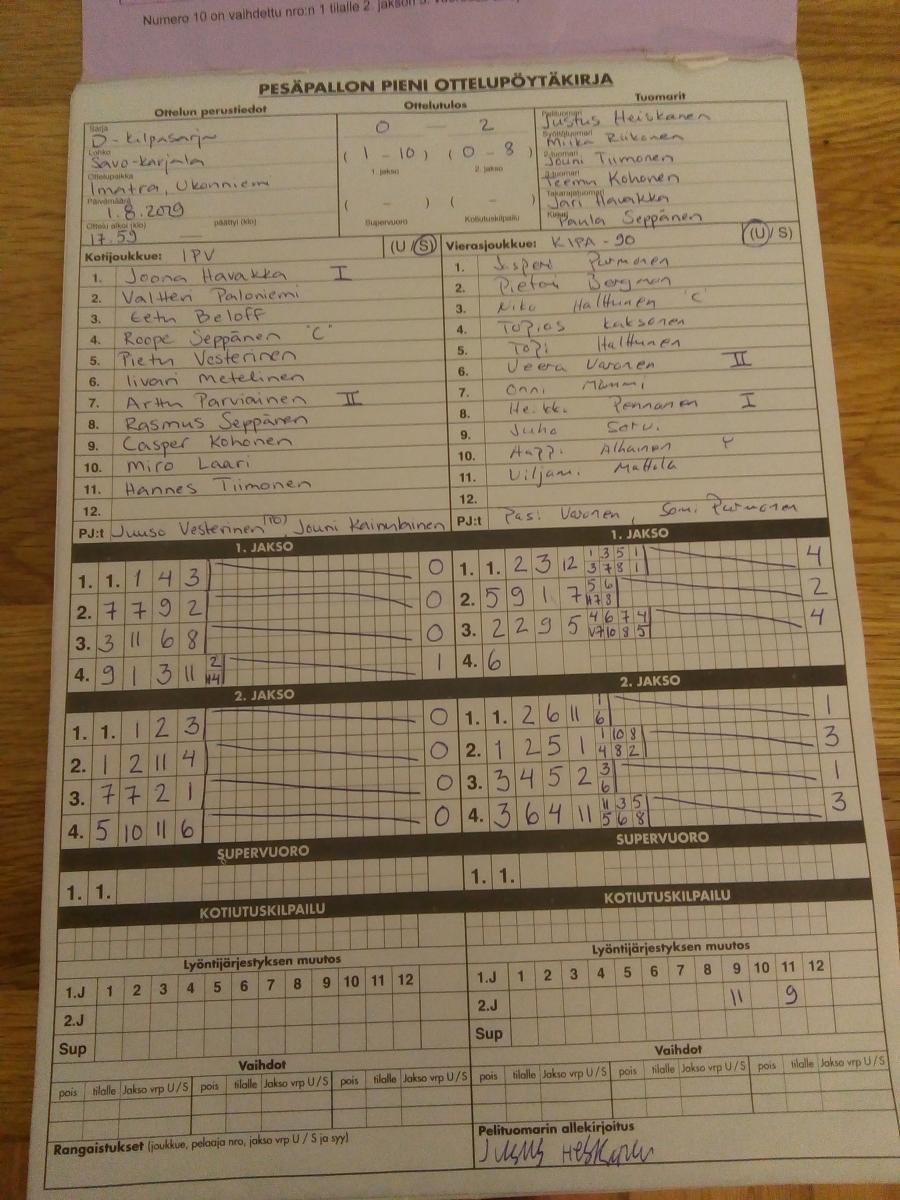 Numero 10 on vaihdettu nro:n 1 tilalle 2. jakson
PESÄPALLON PIENI OTTELUPÖYTÄKIRJA
Ottelun perustiedot
Sarja
D-kilpasarja
Lohko
Savo-karjala
Ottelupaikka
Imatra, Ukonniemi
Päivämäärä
1.8.2029
Ottelu alkoi (klo) päättyi (klo)
17.59 —
Ottelutulos
0 — 2
(1 - 10) (0 - 8)
1. jakso 2. jakso
( - ) ( - )
Supervuoro Kotiutuskilpailu
Tuomarit
Pelituomari
Justus Heiskanen
Syöttötuomari
Miika Riikonen
2-tuomari
Jouni Tiimonen
3-tuomari
Teemu Kohonen
Takarajatuomari
Jari Havakka
Kirjuri
Paula Seppänen
Kotijoukkue: IPV (U / S)
1. Joona Havakka I
2. Valtteri Paloniemi
3. Eetu Beloff
4. Roope Seppänen "C"
5. Pietu Vesterinen
6. Iivari Metelinen
7. Arttu Parviainen II
8. Rasmus Seppänen
9. Casper Kohonen
10. Miro Laari
11. Hannes Tiimonen
12.
PJ:t Juuso Vesterinen, Jouni Kainulainen
Vierasjoukkue: KIPA-90 (U / S)
1. Jesperi Purmonen
2. Pietari Bergman
3. Niko Halttunen "C"
4. Topias Kaksonen
5. Topi Halttunen
6. Veera Varonen II
7. Onni Mämmi
8. Heikki Pennanen I
9. Juho
10. Alhainen
11. Viljami Mattola
12.
PJ:t Pasi Varonen, Sami Purmonen
1. JAKSO
1. 1. 1 4 3 0
2. 7 7 9 2 0
3. 3 11 6 8 0
4. 9 1 3 11 2 1
2. JAKSO
1. 1. 1 2 3 0
2. 1 2 11 4 0
3. 7 7 2 1 0
4. 5 10 11 6 0
SUPERVUORO
1. 1.
KOTIUTUSKILPAILU
Lyöntijärjestyksen muutos
1.J 1 2 3 4 5 6 7 8 9 10 11 12
2.J
Sup
Vaihdot
pois tilalle Jakso vrp U / S pois tilalle Jakso vrp U / S pois tilalle Jakso vrp U / S
Rangaistukset (joukkue, pelaaja nro, jakso vrp U / S ja syy)
1. JAKSO
1. 1. 2 3 12 1 3 5 1 4
3 7 8 1
2. 5 9 1 7 5 6 2
3. 2 2 9 5 4 6 7 4 4
4. 6
2. JAKSO
1. 1. 2 6 11 1 1
6
2. 1 2 5 1 1 10 8 3
4 8 2
3. 3 4 5 2 3 1
6
4. 3 6 4 11 11 3 5 3
5 6 8
SUPERVUORO
1. 1.
KOTIUTUSKILPAILU
Lyöntijärjestyksen muutos
1.J 1 2 3 4 5 6 7 8 9 10 11 12
2.J 11 9
Sup
Vaihdot
pois tilalle Jakso vrp U / S pois tilalle Jakso vrp U / S pois tilalle Jakso vrp U / S
Pelituomarin allekirjoitus
Justus Heiskanen